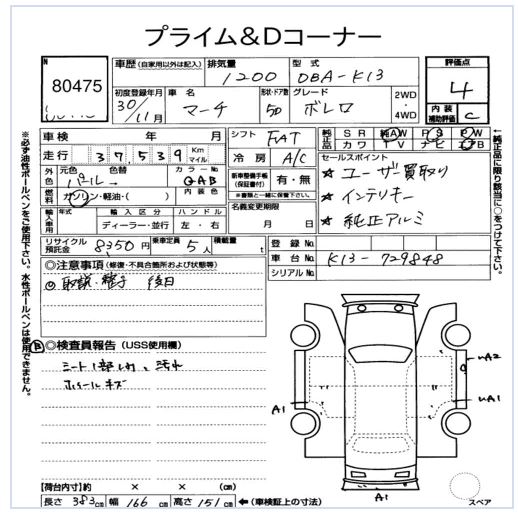 プライム&Dコーナー
N
80475
車歴 (自家用以外は記入)
排気量
1200
型式
DBA-K13
評価点
4
内装
補助評価
C
初度登録年月
30/11月
車名
マーチ
形状・ドア数
5D
グレード
ボレロ
2WD
・
4WD
車検 年 月
走行 37,539 Km
マイル
シフト FAT
純正品
SR AW PS PW
カワ TV ナビ エアB
←純正品に限り該当に○をつけて下さい。
※必ず油性ボールペンをご使用下さい。水性ボールペンは使用できません。
外色
元色
パール
色替
カラーNo.
QAB
冷房 A/C
セールスポイント
★ ユーザー買取り
★ インテリキー
★ 純正アルミ
燃料
ガソリン・軽油・( )
内装色
新車整備手帳
(保証書付)
有・無
※書類と一緒に保管して下さい。
輸入車用
年式
輸入区分
ディーラー・並行
ハンドル
左・右
名義変更期限
月 日
リサイクル
預託金
8350円
乗車定員
5人
積載量
t
登録No.
車台No. K13-729848
シリアルNo.
◎注意事項 (修復・不具合箇所および状態等)
取説・ 後日
◎検査員報告 (USS使用欄)
シート1部 汚れ
ホイールキズ
A1
UA2
UA1
A1
スペア
【荷台内寸】約 × × (cm)
長さ 383cm 幅 166cm 高さ 151cm ←(車検証上の寸法)